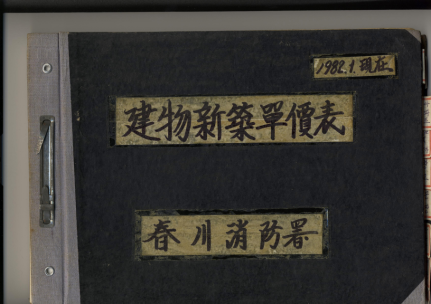 1982.1.現在
建物新築單價表
春川消防署